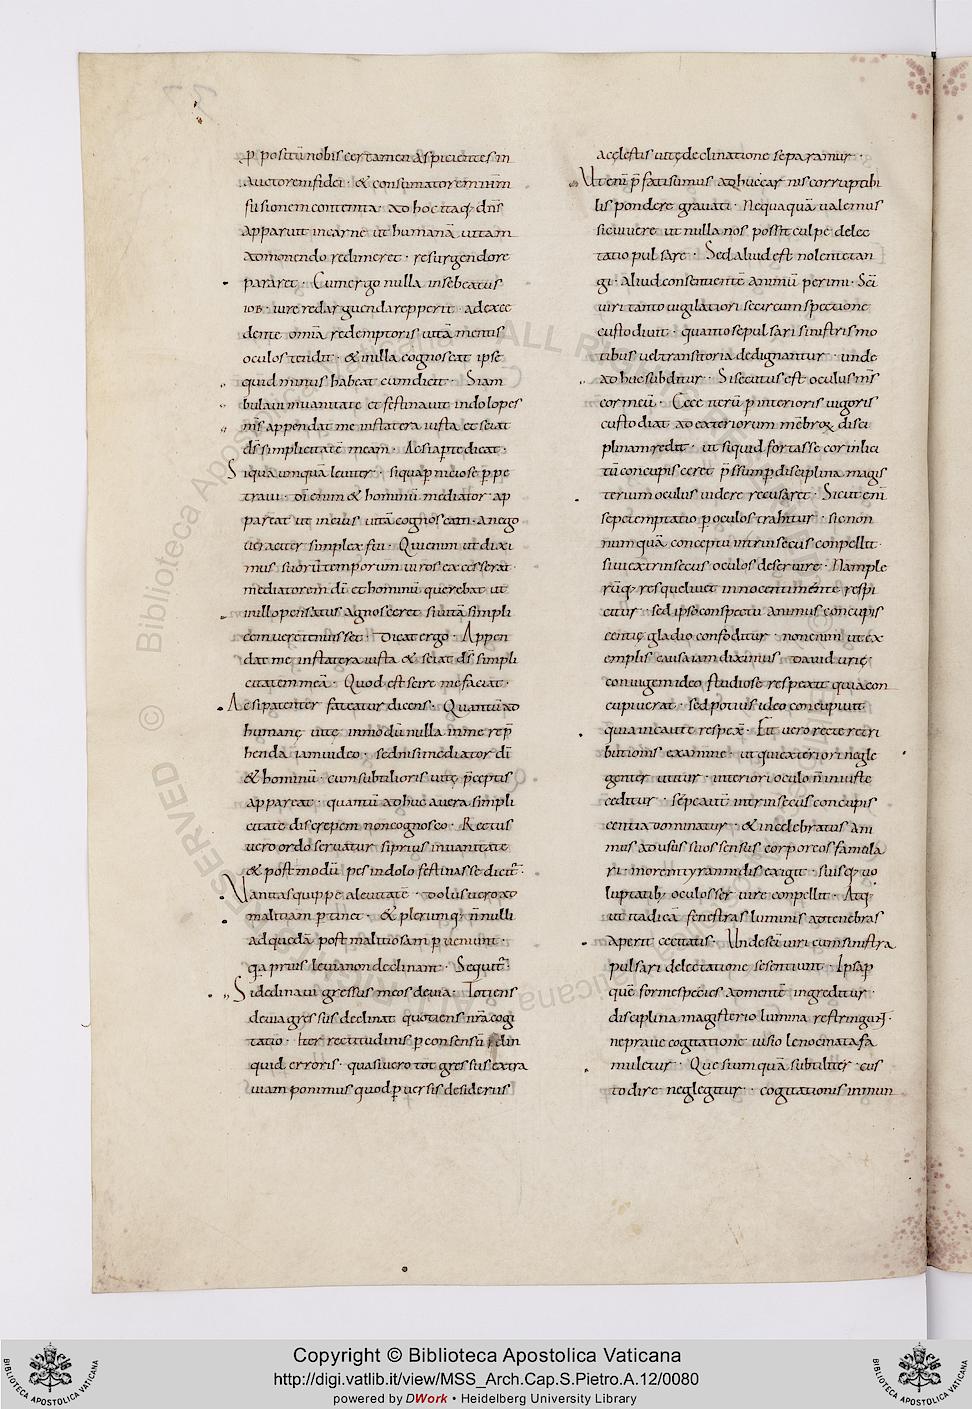 ꝓ positū nobis certamen aspicientes in
auctorem fidei · & consumatorem ihm̄
fusionem contempta · ad hoc itaq; dn̄s
apparuit incarne ut humanā uitam
admonendo redimeret · resurgendore
pararet · Cum ergo nulla inse beatus
iob · uirere darguenda repperit · adexce
dente omīa redemptoris uitā mentis
oculos tendit · & in illa cognoscat ipse
quid minus habeat eum dicit · Si am
bulaui inuanitate et festinauit indolo pes
m̄s appendat me instatera iusta et sciat
d̄s simplicitatē meam · Ac si aꝑte dicat ·
Si qua umquā leuiter · si qua perniciose ꝑpe
traui · dī enim & hominū mediator · ap
pareat ut in eius uitā cognoscam · an ego
ueraciter simplex fui · Qui enim ut dixi
mus suorū temporum uiros excesserat ·
mediatorem dī et hominū querebat ut
in illo pensatus agnosceret si uitā simpli
cem uere tenuisset · Dicat ergo · Appen
dat me instatera iusta & sciat d̄s simpli
citatem meā · Quod est scire me faciat ·
Ac si patenter fateatur dicens · Quantū ad
humanę uitę inmodū nulla in me rep̄
henda iam uideo · sed nisi mediator dī
& hominū · cum subtilioris uitę p̄ceptis
appareat · quantū adhuc a uera simpli
citate discrepem non cognosco · Rectus
uero ordo seruatur si prius inuanitate
& postmodū pes indolo festinasse dicit̄ ·
Vanitas quippe a leuitatē · dolus uero ad
malitiam ꝑtinet · & plerumq; n̄nulli
ad quedā post malitiosam ꝑueniunt ·
qa prius leuia non declinant · Sequit̄ ·
Si declinaui gressus meos deuia · Totiens
deuia gressus declinat quotiens nr̄a cogi
tatio · Iter rectitudinis ꝑ consensū
quid erroris · quasi uero tot gressus extra
uiam ponimus quod ꝑuersis desideriis
acęlestis uitę declinatione separamur ·
Ut enī p̄fati sumus adhuc carnis corruptibi
lis pondere grauati · Nequaquā ualemus
sic uiuere ut nulla nos possit culpe delec
tatio pulsare · Sed aliud est nolente tan
gi · aliud consentientē animū perimi · Sc̄i
uiri tanto uigilatiori se circumspectione
custodiunt · quanto se pulsari sinistris mo
tibus uel transitoria dedignantur · unde
adhuc subditur · Si secutus est oculus m̄s
cor meū · Ecce iterū ꝑ interioris uigoris
custodiat ad exteriorum mēbroꝝ disci
plinam redit · ut siquid fortasse cor inlici
tū concupisceret p̄ssum ꝑ disciplina magis
terium oculus uidere recusaret · Sicut enī
sepe temptatio ꝑ oculos trahitur · sic non
numquā concepta intrinsecus conpellit ·
sibi extrinsecus oculos deseruire · Nam ple
rūq; res quelibet innocenti mente respi
citur · sed ipso conspectu animus concupis
centię gladio confoditur · non enim ut ex
emplis causa iam diximus david urię
coniugem ideo studiose respexit quia con
cupiuerat · sed potius ideo concupiuit
quia incaute respex̄ · Fit uero recte retri
butionis examine · ut qui exteriori negle
genter utitur · interiori oculo n̄ iniuste
cedatur · sępe autē intrinsecus concupis
centia dominatur · & inlecebratus ani
mus ad usus suos sensus corporeos famula
ri · more tyrannidis exigit · suisq; uo
luptatib; oculos seruire conpellit · Atq;
ut ita dicā fenestras luminis ad tenebras
aperit cecitatis · Unde sc̄i uiri cum sinistra
pulsari delectatione se sentiunt · Ipsa ꝑ
quē forme species ad mentē ingreditur ·
disciplina magisterio lumina restringun̄ ·
ne praue cogitationi uisio lenocinata fa
muletur · Que si umquā subtiliter cus
todire neglegitur · cogitationis inmun
Copyright © Biblioteca Apostolica Vaticana
http://digi.vatlib.it/view/MSS_Arch.Cap.S.Pietro.A.12/0080
powered by DWork • Heidelberg University Library